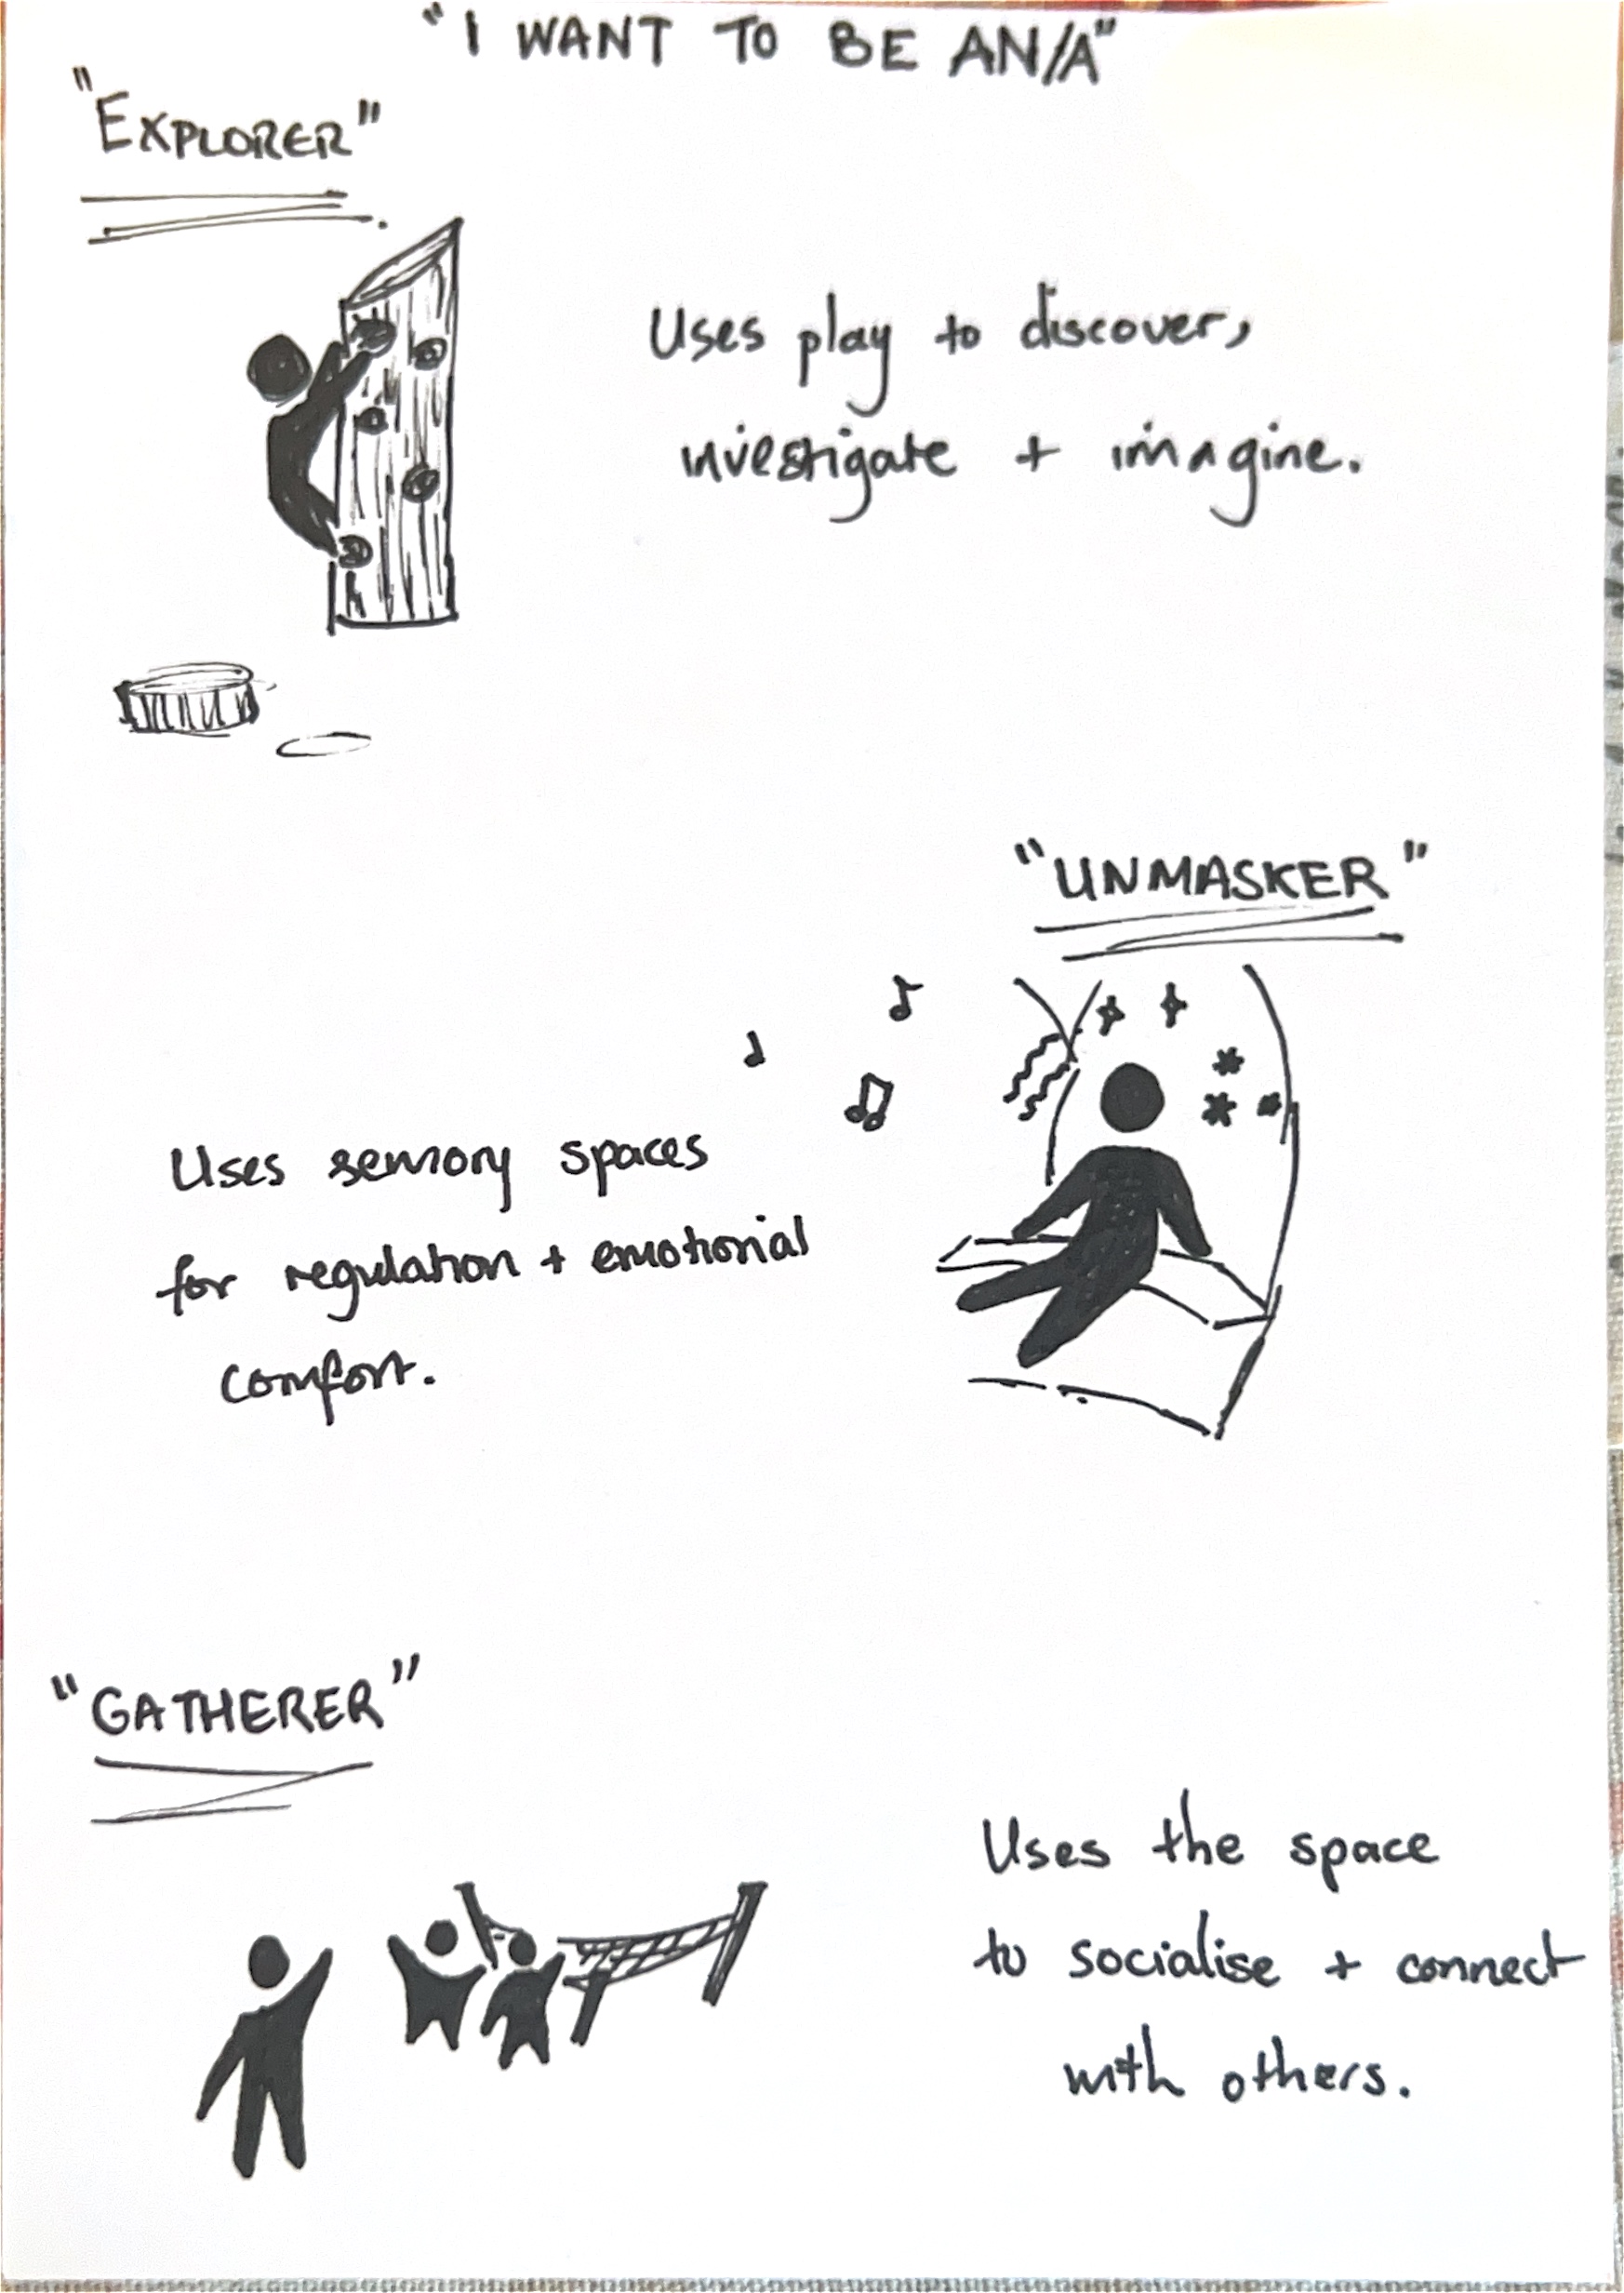 "I WANT TO BE AN/A"
"EXPLORER"
Uses play to discover,
investigate + imagine.
"UNMASKER"
Uses sensory spaces
for regulation + emotional
comfort.
"GATHERER"
Uses the space
to socialise + connect
with others.